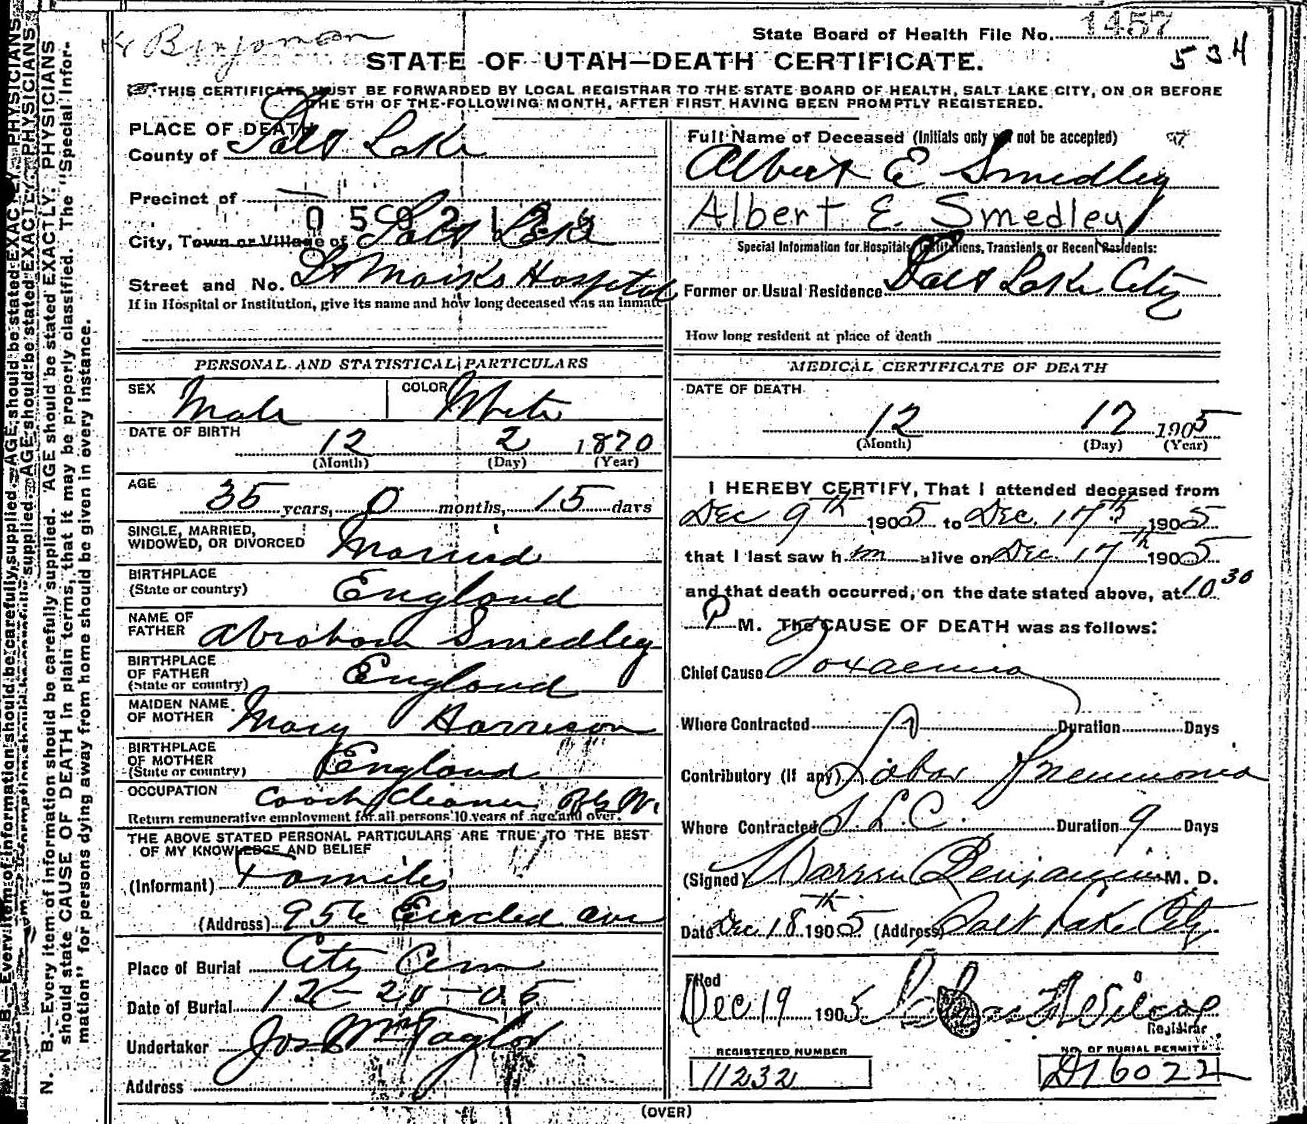 Benjaman
State Board of Health File No. 1457
534
STATE OF UTAH—DEATH CERTIFICATE.
THIS CERTIFICATE MUST BE FORWARDED BY LOCAL REGISTRAR TO THE STATE BOARD OF HEALTH, SALT LAKE CITY, ON OR BEFORE
THE 5TH OF THE FOLLOWING MONTH, AFTER FIRST HAVING BEEN PROMPTLY REGISTERED.
PLACE OF DEATH
County of Salt Lake
Precinct of
City, Town or Village of Salt Lake
Street and No. St Marks Hospital
If in Hospital or Institution, give its name and how long deceased was an inmate
Full Name of Deceased (Initials only not be accepted)
Albert E Smedley
Albert E. Smedley
Special Information for Hospitals, Institutions, Transients or Recent Residents:
Former or Usual Residence Salt Lake City
How long resident at place of death
PERSONAL AND STATISTICAL PARTICULARS
SEX Male COLOR White
DATE OF BIRTH 12 2 1870
(Month) (Day) (Year)
AGE 35 years, 0 months, 15 days
SINGLE, MARRIED,
WIDOWED, OR DIVORCED Married
BIRTHPLACE
(State or country) England
NAME OF
FATHER Abraham Smedley
BIRTHPLACE
OF FATHER
(State or country) England
MAIDEN NAME
OF MOTHER Mary Harrison
BIRTHPLACE
OF MOTHER
(State or country) England
OCCUPATION Coach cleaner
Return remunerative employment for all persons 10 years of age and over.
THE ABOVE STATED PERSONAL PARTICULARS ARE TRUE TO THE BEST
OF MY KNOWLEDGE AND BELIEF
(Informant) Family
(Address) 956 ave
Place of Burial City Cem
Date of Burial 12-20-05
Undertaker Jos Wm Taylor
Address
MEDICAL CERTIFICATE OF DEATH
DATE OF DEATH
12 17 1905
(Month) (Day) (Year)
I HEREBY CERTIFY, That I attended deceased from
Dec 9th 1905 to Dec. 17th 1905
that I last saw h m alive on Dec. 17th 1905
and that death occurred, on the date stated above, at 10 30
P M. The CAUSE OF DEATH was as follows:
Chief Cause Toxaemia
Where Contracted ? Duration Days
Contributory (If any) Lobar Pneumonia
Where Contracted S.L.C. Duration 9 Days
(Signed) Warren Benjamin M. D.
Date Dec. 18th 1905 (Address) Salt Lake City
Filed
Dec 19 1905
Registrar
REGISTERED NUMBER
11232
NO. OF BURIAL PERMIT
D16022
(OVER)
N. B.—Every item of information should be carefully supplied. AGE should be stated EXACTLY. PHYSICIANS
should state CAUSE OF DEATH in plain terms, that it may be properly classified. The "Special Infor-
mation" for persons dying away from home should be given in every instance.